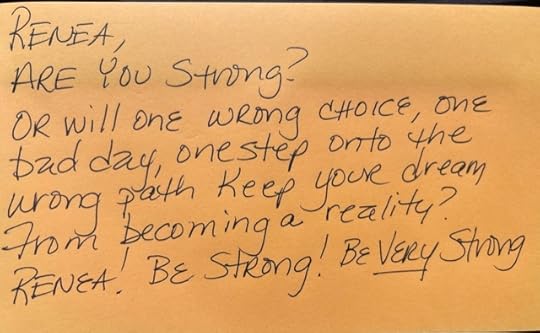 RENEA,
ARE YOU Strong?
OR will ONE WRONG CHOICE, ONE
bad day, one step onto the
wrong path keep your dream
From becoming a reality?
RENEA! BE STRONG! BE VERY Strong